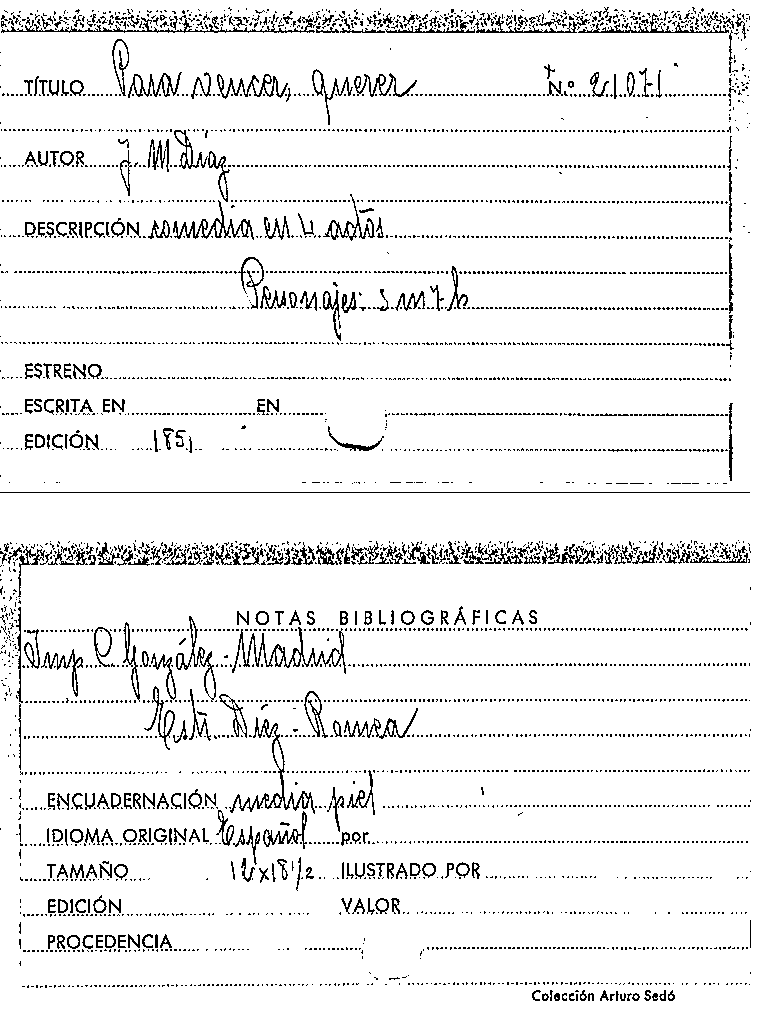 TÍTULO Para vencer, querer N.º 21071
AUTOR J. M Díaz
DESCRIPCIÓN comedia en 4 actos
Personajes: 5 m 7 h
ESTRENO
ESCRITA EN EN
EDICIÓN 1851
NOTAS BIBLIOGRÁFICAS
Imp C. González - Madrid
Estr. Díez - Romea
ENCUADERNACIÓN media piel
IDIOMA ORIGINAL Español por
TAMAÑO 12x18 1/2 ILUSTRADO POR
EDICIÓN VALOR
PROCEDENCIA
Colección Arturo Sedó